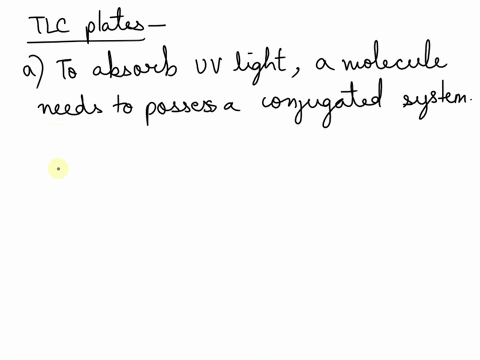 TLC plates —
a) To absorb UV light, a molecule
needs to possess a conjugated system.